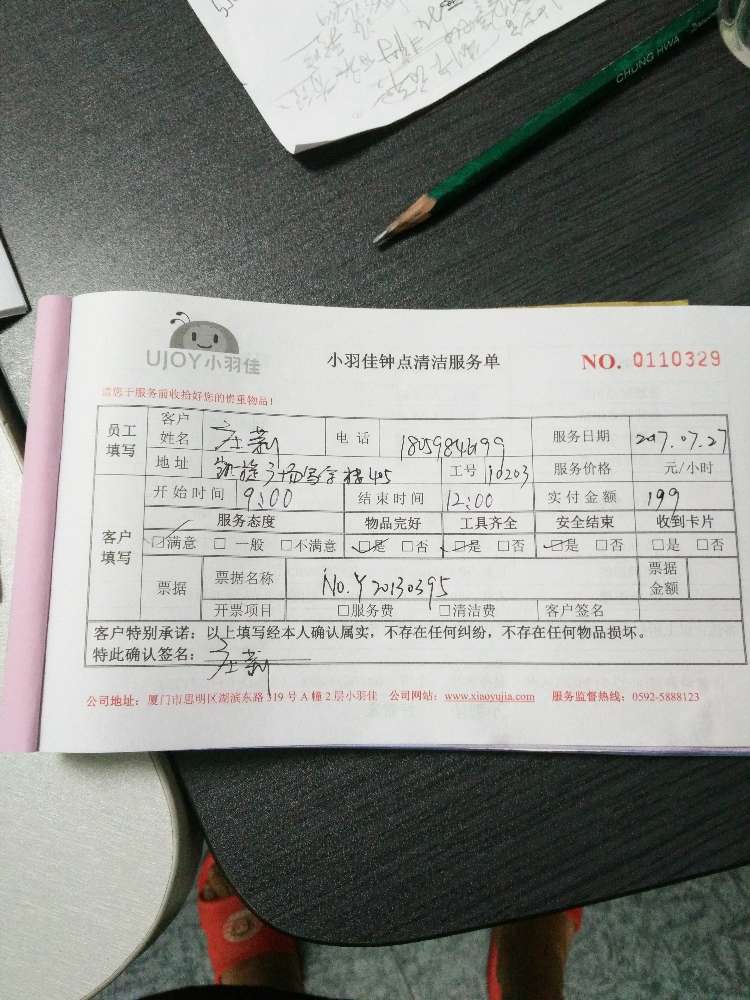 CHUNG HWA
UJOY小羽佳
小羽佳钟点清洁服务单
NO. 0110329
请您于服务前收拾好您的贵重物品!
员工填写 客户姓名 庄 电话 服务日期 2017.07.27
地址 凯旋广场写字楼405 工号 10203 服务价格 元/小时
开始时间 9:00 结束时间 12:00 实付金额 199
客户填写 服务态度 物品完好 工具齐全 安全结束 收到卡片
☑满意 □ 一般 □不满意 ☑是 □否 ☑是 □否 ☑是 □否 □是 □否
票据 票据名称 No.Y20130395 票据金额
开票项目 □服务费 □清洁费 客户签名
客户特别承诺:以上填写经本人确认属实,不存在任何纠纷,不存在任何物品损坏。
特此确认签名: 庄
公司地址:厦门市思明区湖滨东路319号A幢2层小羽佳 公司网站:www.xiaoyujia.com 服务监督热线:0592-5888123